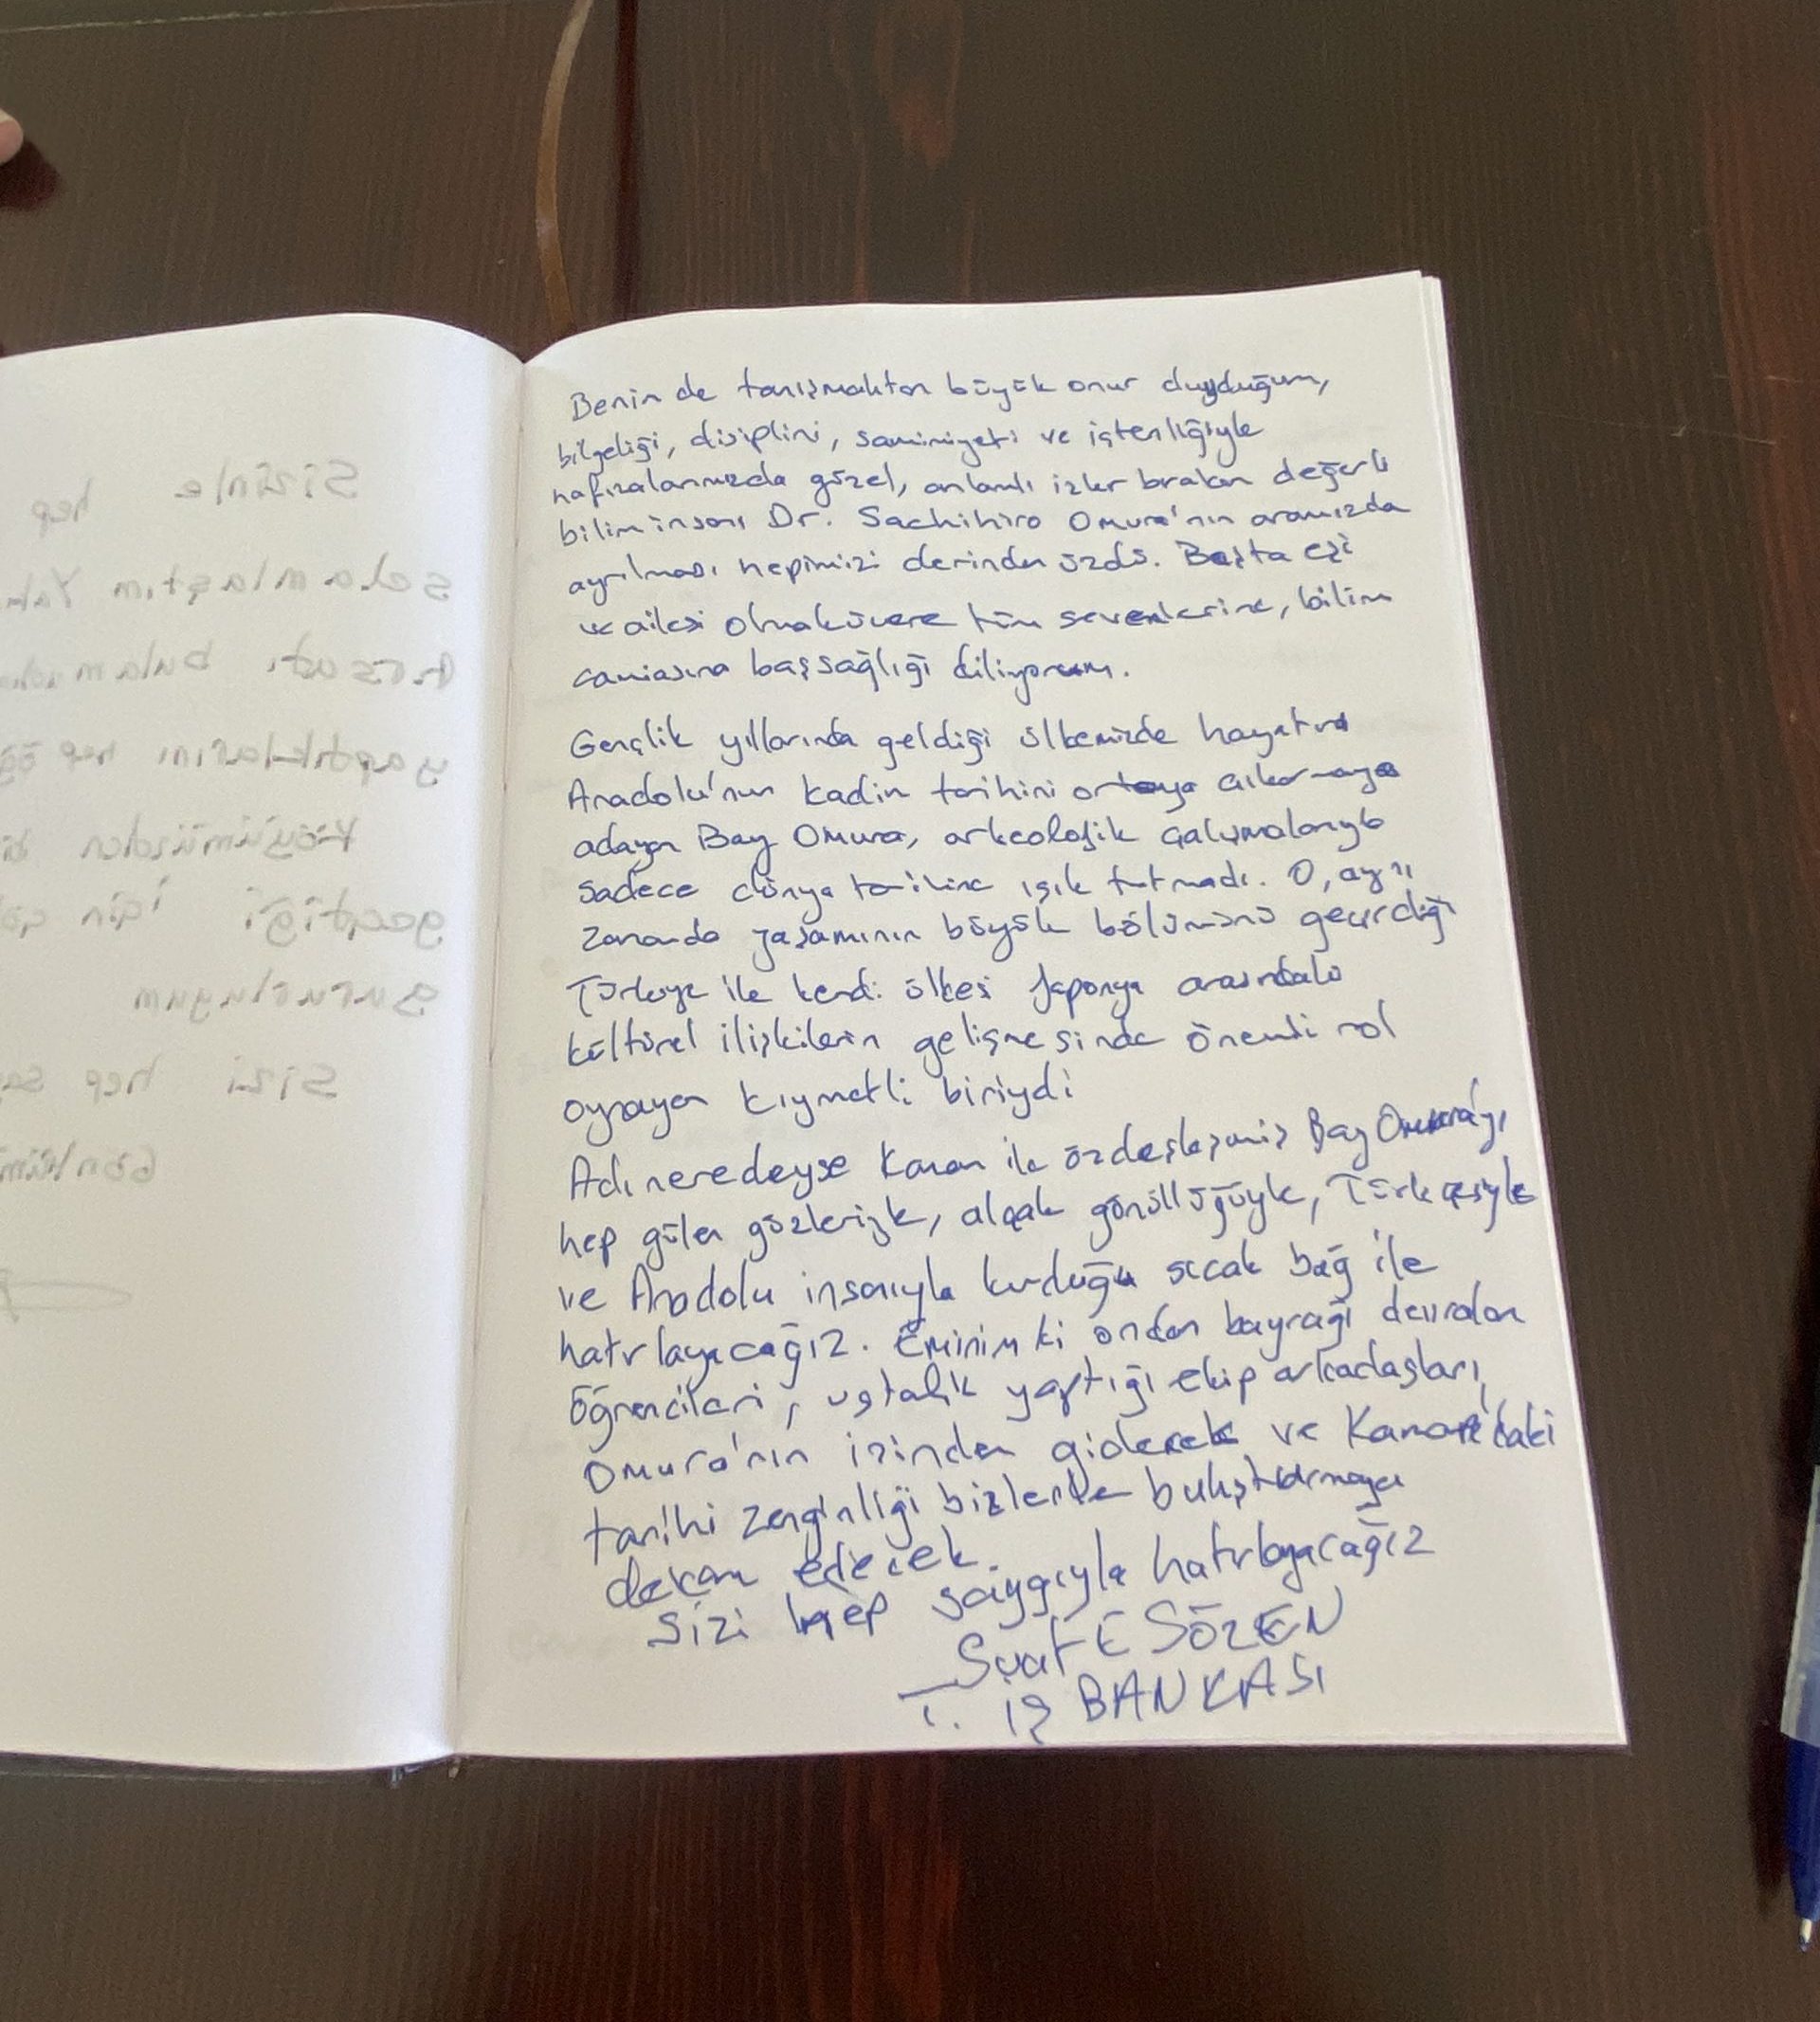 Sizinle hep
selamlaştım
fırsatı bulamadım
yaptıklarını hep
Köyümüzden
geçtiği için
gururluyum
Sizi hep
Benim de tanışmaktan büyük onur duyduğum,
bilgeliği, disiplini, samimiyeti ve içtenliğiyle
hafızalarımızda güzel, anlamlı izler bırakan değerli
bilim insanı Dr. Sachihiro Omura'nın aramızda
ayrılması hepimizi derinden üzdü. Başta eşi
ve ailesi olmak üzere tüm sevenlerine, bilim
camiasına başsağlığı diliyorum.
Gençlik yıllarında geldiği ülkemizde hayatını
Anadolu'nun kadim tarihini ortaya çıkarmaya
adayan Bay Omura, arkeolojik çalışmalarıyla
sadece dünya tarihine ışık tutmadı. O, aynı
zamanda yaşamının büyük bölümünü geçirdiği
Türkiye ile kendi ülkesi Japonya arasındaki
kültürel ilişkilerin gelişmesinde önemli rol
oynayan kıymetli biriydi
Adı neredeyse Kaman ile özdeşleşmiş Bay Omura'yı
hep gülen gözleriyle, alçak gönüllüğüyle, Türkçesiyle
ve Anadolu insanıyla kurduğu sıcak bağ ile
hatırlayacağız. Eminim ki ondan bayrağı devralan
öğrencileri, ustalık yaptığı ekip arkadaşları,
Omura'nın izinden giderek ve Kaman'daki
tarihi zenginliği bizlerle buluşturmaya
devam edecek.
Sizi hep saygıyla hatırlayacağız
Suat E SÖZEN
T. İŞ BANKASI